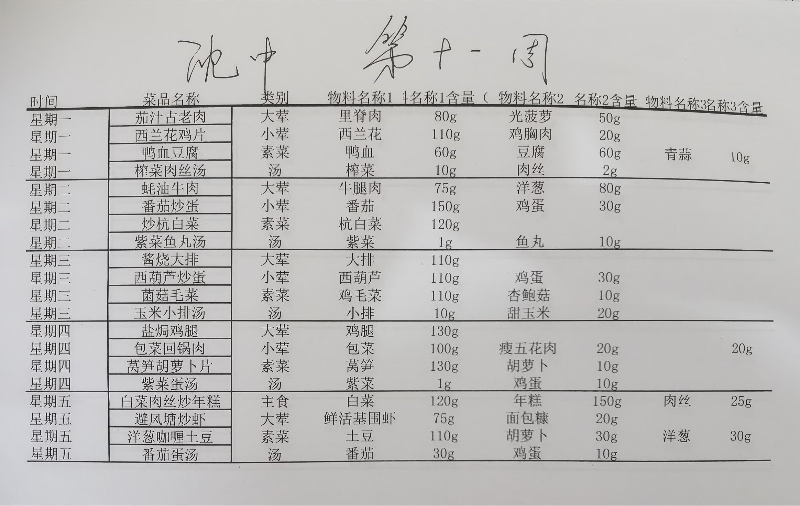 沈中 第十一周
时间 菜品名称 类别 物料名称1 料名称1含量( 物料名称2 名称2含量 物料名称3 名称3含量
星期一 茄汁古老肉 大荤 里脊肉 80g 光菠萝 50g
星期一 西兰花鸡片 小荤 西兰花 110g 鸡胸肉 20g
星期一 鸭血豆腐 素菜 鸭血 60g 豆腐 60g 青蒜 10g
星期一 榨菜肉丝汤 汤 榨菜 10g 肉丝 2g
星期二 蚝油牛肉 大荤 牛腿肉 75g 洋葱 80g
星期二 番茄炒蛋 小荤 番茄 150g 鸡蛋 30g
星期二 炒杭白菜 素菜 杭白菜 120g
星期二 紫菜鱼丸汤 汤 紫菜 1g 鱼丸 10g
星期三 酱烧大排 大荤 大排 110g
星期三 西葫芦炒蛋 小荤 西葫芦 110g 鸡蛋 30g
星期三 菌菇毛菜 素菜 鸡毛菜 110g 杏鲍菇 10g
星期三 玉米小排汤 汤 小排 10g 甜玉米 20g
星期四 盐焗鸡腿 大荤 鸡腿 130g
星期四 包菜回锅肉 小荤 包菜 100g 瘦五花肉 20g 20g
星期四 莴笋胡萝卜片 素菜 莴笋 130g 胡萝卜 10g
星期四 紫菜蛋汤 汤 紫菜 1g 鸡蛋 10g
星期五 白菜肉丝炒年糕 主食 白菜 120g 年糕 150g 肉丝 25g
星期五 避风塘炒虾 大荤 鲜活基围虾 75g 面包糠 20g
星期五 洋葱咖喱土豆 素菜 土豆 110g 胡萝卜 30g 洋葱 30g
星期五 番茄蛋汤 汤 番茄 30g 鸡蛋 10g